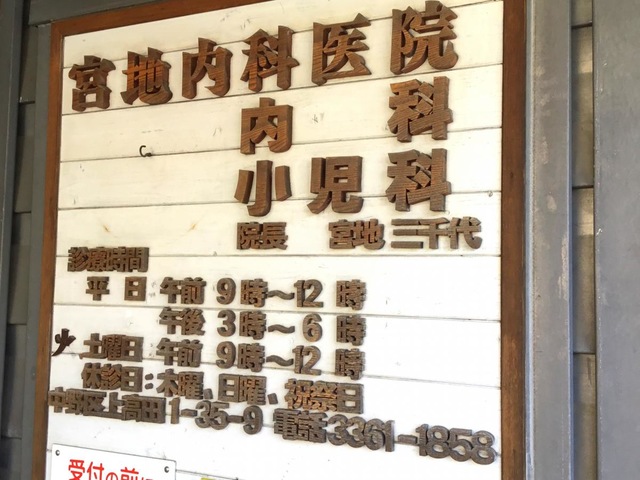 宮地内科医院
内科
小児科
院長 宮地 三千代
診療時間
平日 午前 9時～12時
午後 3時～6時
火 土曜日 午前 9時～12時
休診日：木曜、日曜、祝祭日
中野区上高田1-35-9 電話3361-1858
受付の前に